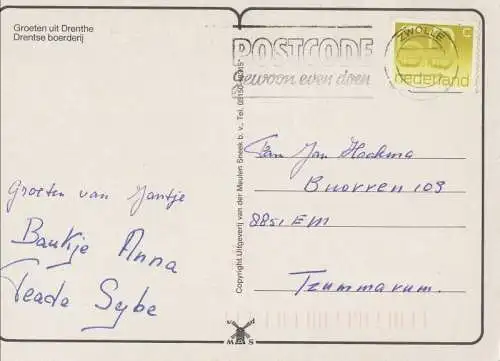 Groeten uit Drenthe
Drentse boerderij
POSTCODE
gewoon even doen
ZWOLLE
65 c
nederland
Groeten van Jantje
Baukje Anna
Teade Sybe
Copyright Uitgeverij van der Meulen Sneek b. v., Tel.
Fam Jan Hoekma
Buorren 103
8851 EM
Tzummarum.
M S